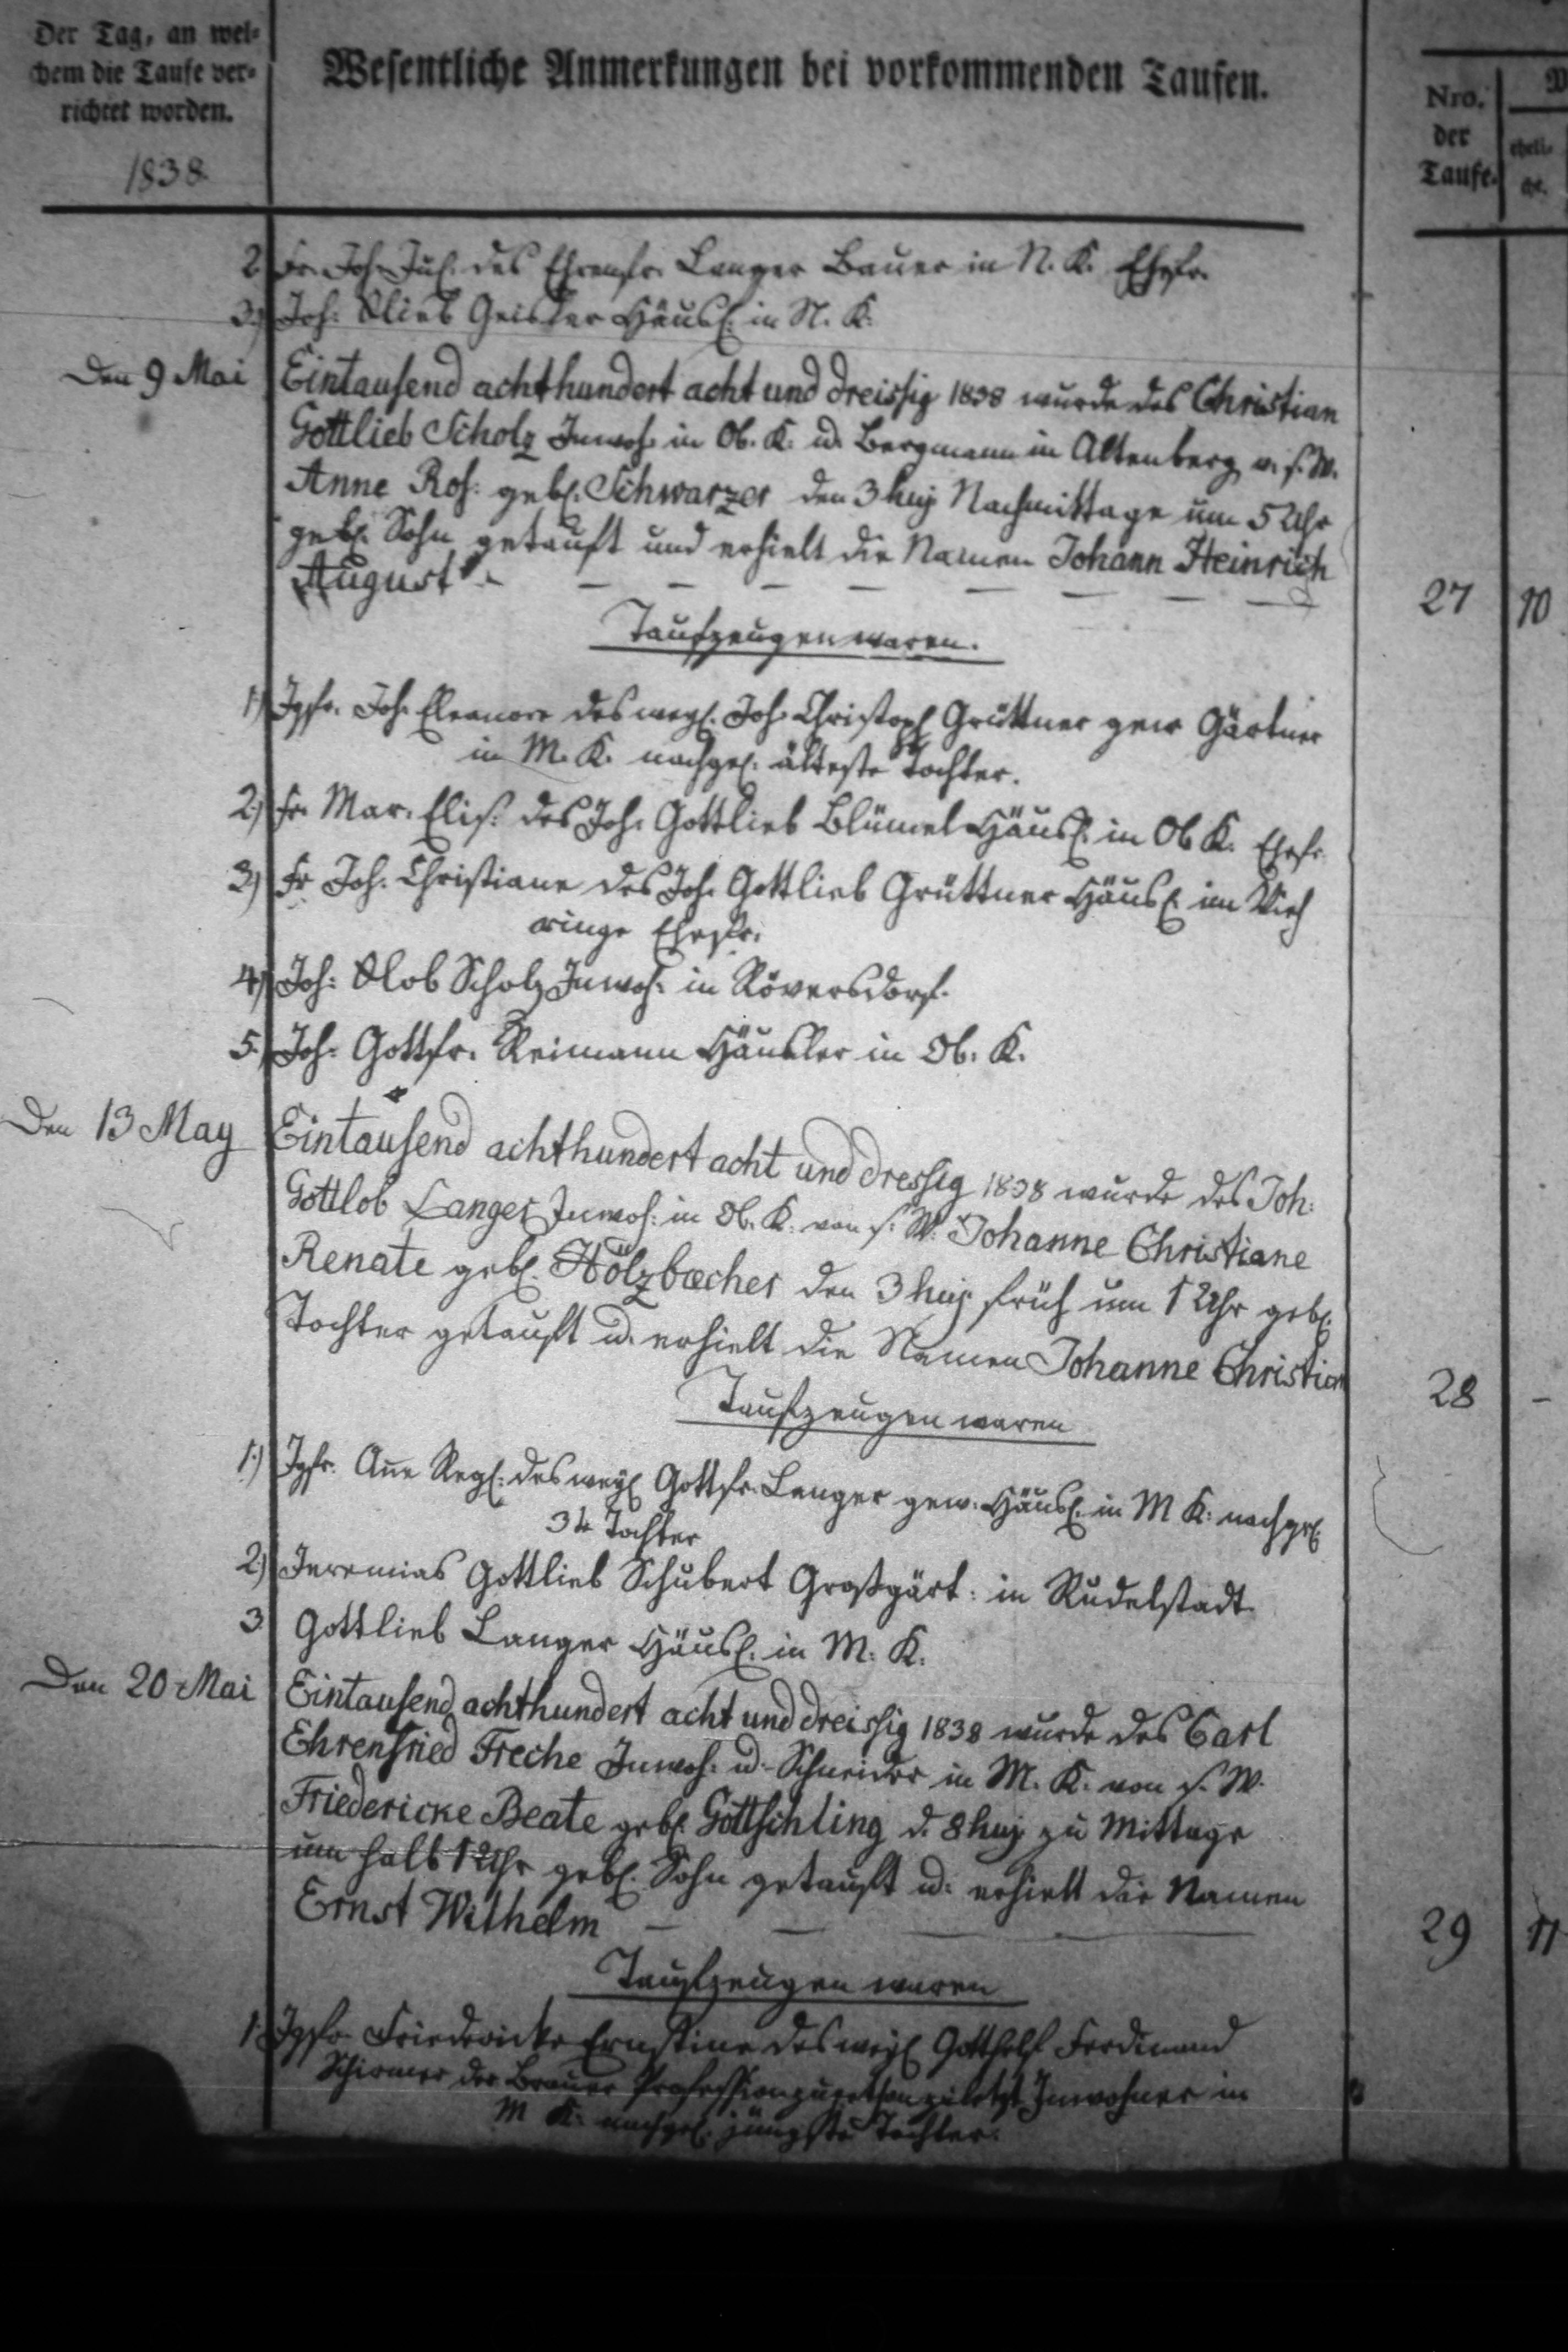 Der Tag, an wel-
chem die Taufe ver-
richtet worden.
1838.
Wesentliche Anmerkungen bei vorkommenden Taufen.
Nro.
der
Taufe.
eheli-
che.
2. Fr. Joh. Jul. des Ehrenfr. Langer Bauer in N. K. Ehefr.
3.) Joh: Glieb Geisler Häusl. in N. K.
Den 9 Mai
Eintausend achthundert acht und dreissig 1838 wurde des Christian
Gottlieb Scholz Inwoh. in Ob. K. u. Bergmann in Altenberg v. s. W.
Anne Ros: geb. Schwarzer den 3 huj Nachmittage um 5 Uhr
geb. Sohn getauft und erhielt die Namen Johann Heinrich
August. — — — — — — —
27 10
Taufzeugen waren.
1.) Jgfr. Joh. Eleanore des weyl. Joh. Christoph Grüttner gew Gärtner
in M. K. nachgel. älteste Tochter.
2.) Fr. Mar. Elis. des Joh. Gottlieb Blümel Häusl. in Ob K. Ehefr.
3.) Fr Joh. Christiane des Joh. Gottlieb Grüttner Häusl. im Vieh
ringe Ehefr.
4.) Joh: Glob Scholz Inwoh: in Röversdorf.
5.) Joh: Gottfr. Reimann Häusler in Ob. K.
Den 13 May
Eintausend achthundert acht und dressig 1838 wurde des Joh:
Gottlob Langer Inwoh: in Ob. K. von s. W. Johanne Christiane
Renate geb. Hölzbecher den 3 huj früh um 1 Uhr geb.
Tochter getauft u. erhielt die Namen Johanne Christian
28 -
Taufzeugen waren
1.) Jgfr. Ane Regl. des weyl Gottfr. Langer gew. Häusl. in M K. nachgel.
3te Tochter
2.) Jeremias Gottlieb Schubert Großgärt: in Rudelstadt
3 Gottlieb Langer Häusl. in M. K.
Den 20 Mai
Eintausend achthundert acht und dreissig 1838 wurde des Carl
Ehrenfried Freche Inwoh: u. Schneider in M. K. von s. W.
Friedericke Beate geb. Göttschling d. 8 huj zu Mittage
um halb 1 Uhr geb. Sohn getauft u: erhielt die Namen
Ernst Wilhelm — — —
29 11
Taufzeugen waren
1. Jgfr. Friedericke Ernstine des weyl Gotthelf Ferdinand
Schirmer der Brauer Profession zugethan zuletzt Inwohner in
M K: nachgel. jüngste Tochter.